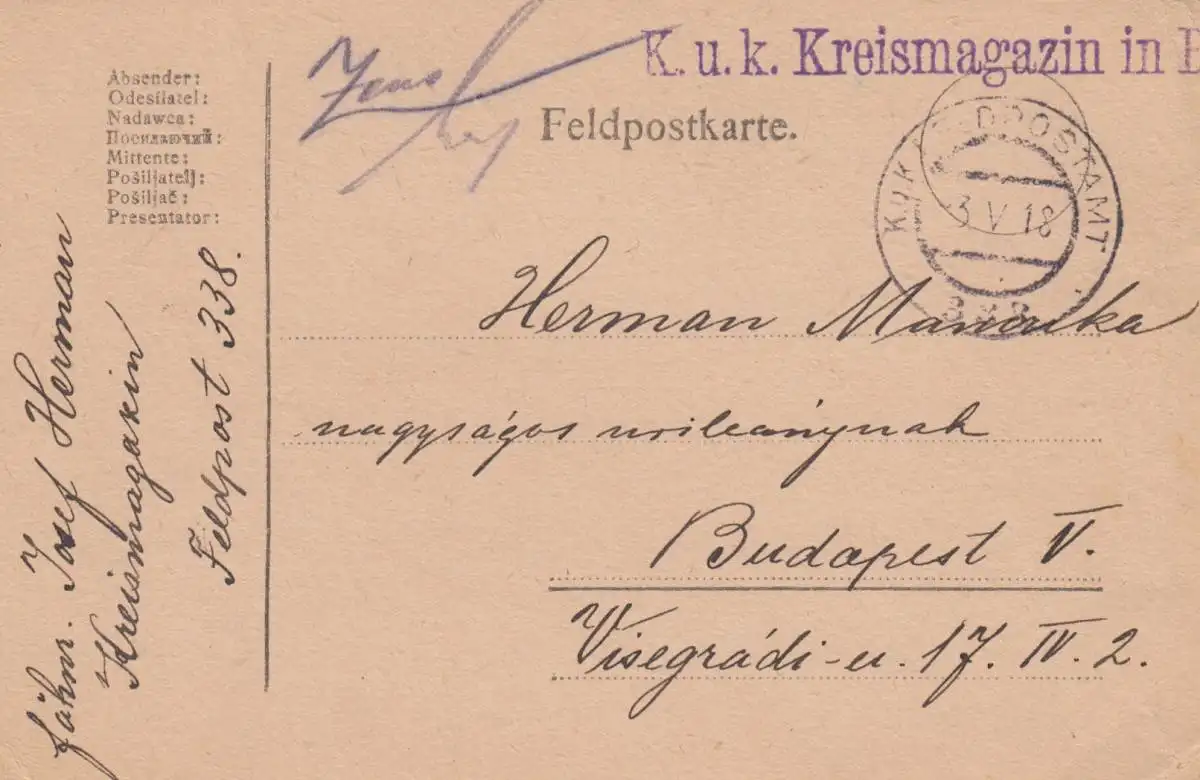 K. u. k. Kreismagazin in
Feldpostkarte.
Absender:
Odesilatel:
Nadawca:
Посилаючий:
Mittente:
Pošiljatelj:
Pošiljač:
Presentator:
POSTAMT
3 V 18
338
Herman Manczika
nagyságos urileánynak
Budapest V.
Visegrádi-u. 17. IV. 2.
fähnr. Josef Herman
Kreismagazin
Feldpost 338.